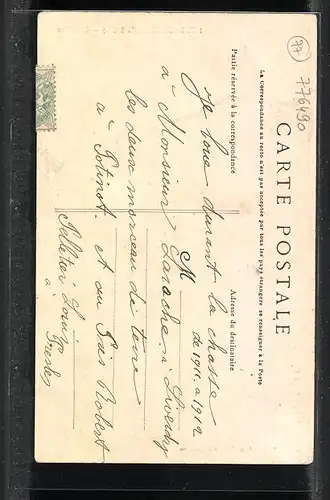 77
776490
CARTE POSTALE
La Correspondance au recto n'est pas acceptée par tous les pays étrangers se renseigner à la Poste
Partie réservée à la correspondance
Adresse du destinataire
Je loue durant la chasse
de 1911 a 1912
M
a Monsieur Larache a
les deux morceau de terre
a et au Gros Robert
Pelletier Louis
a
Presles